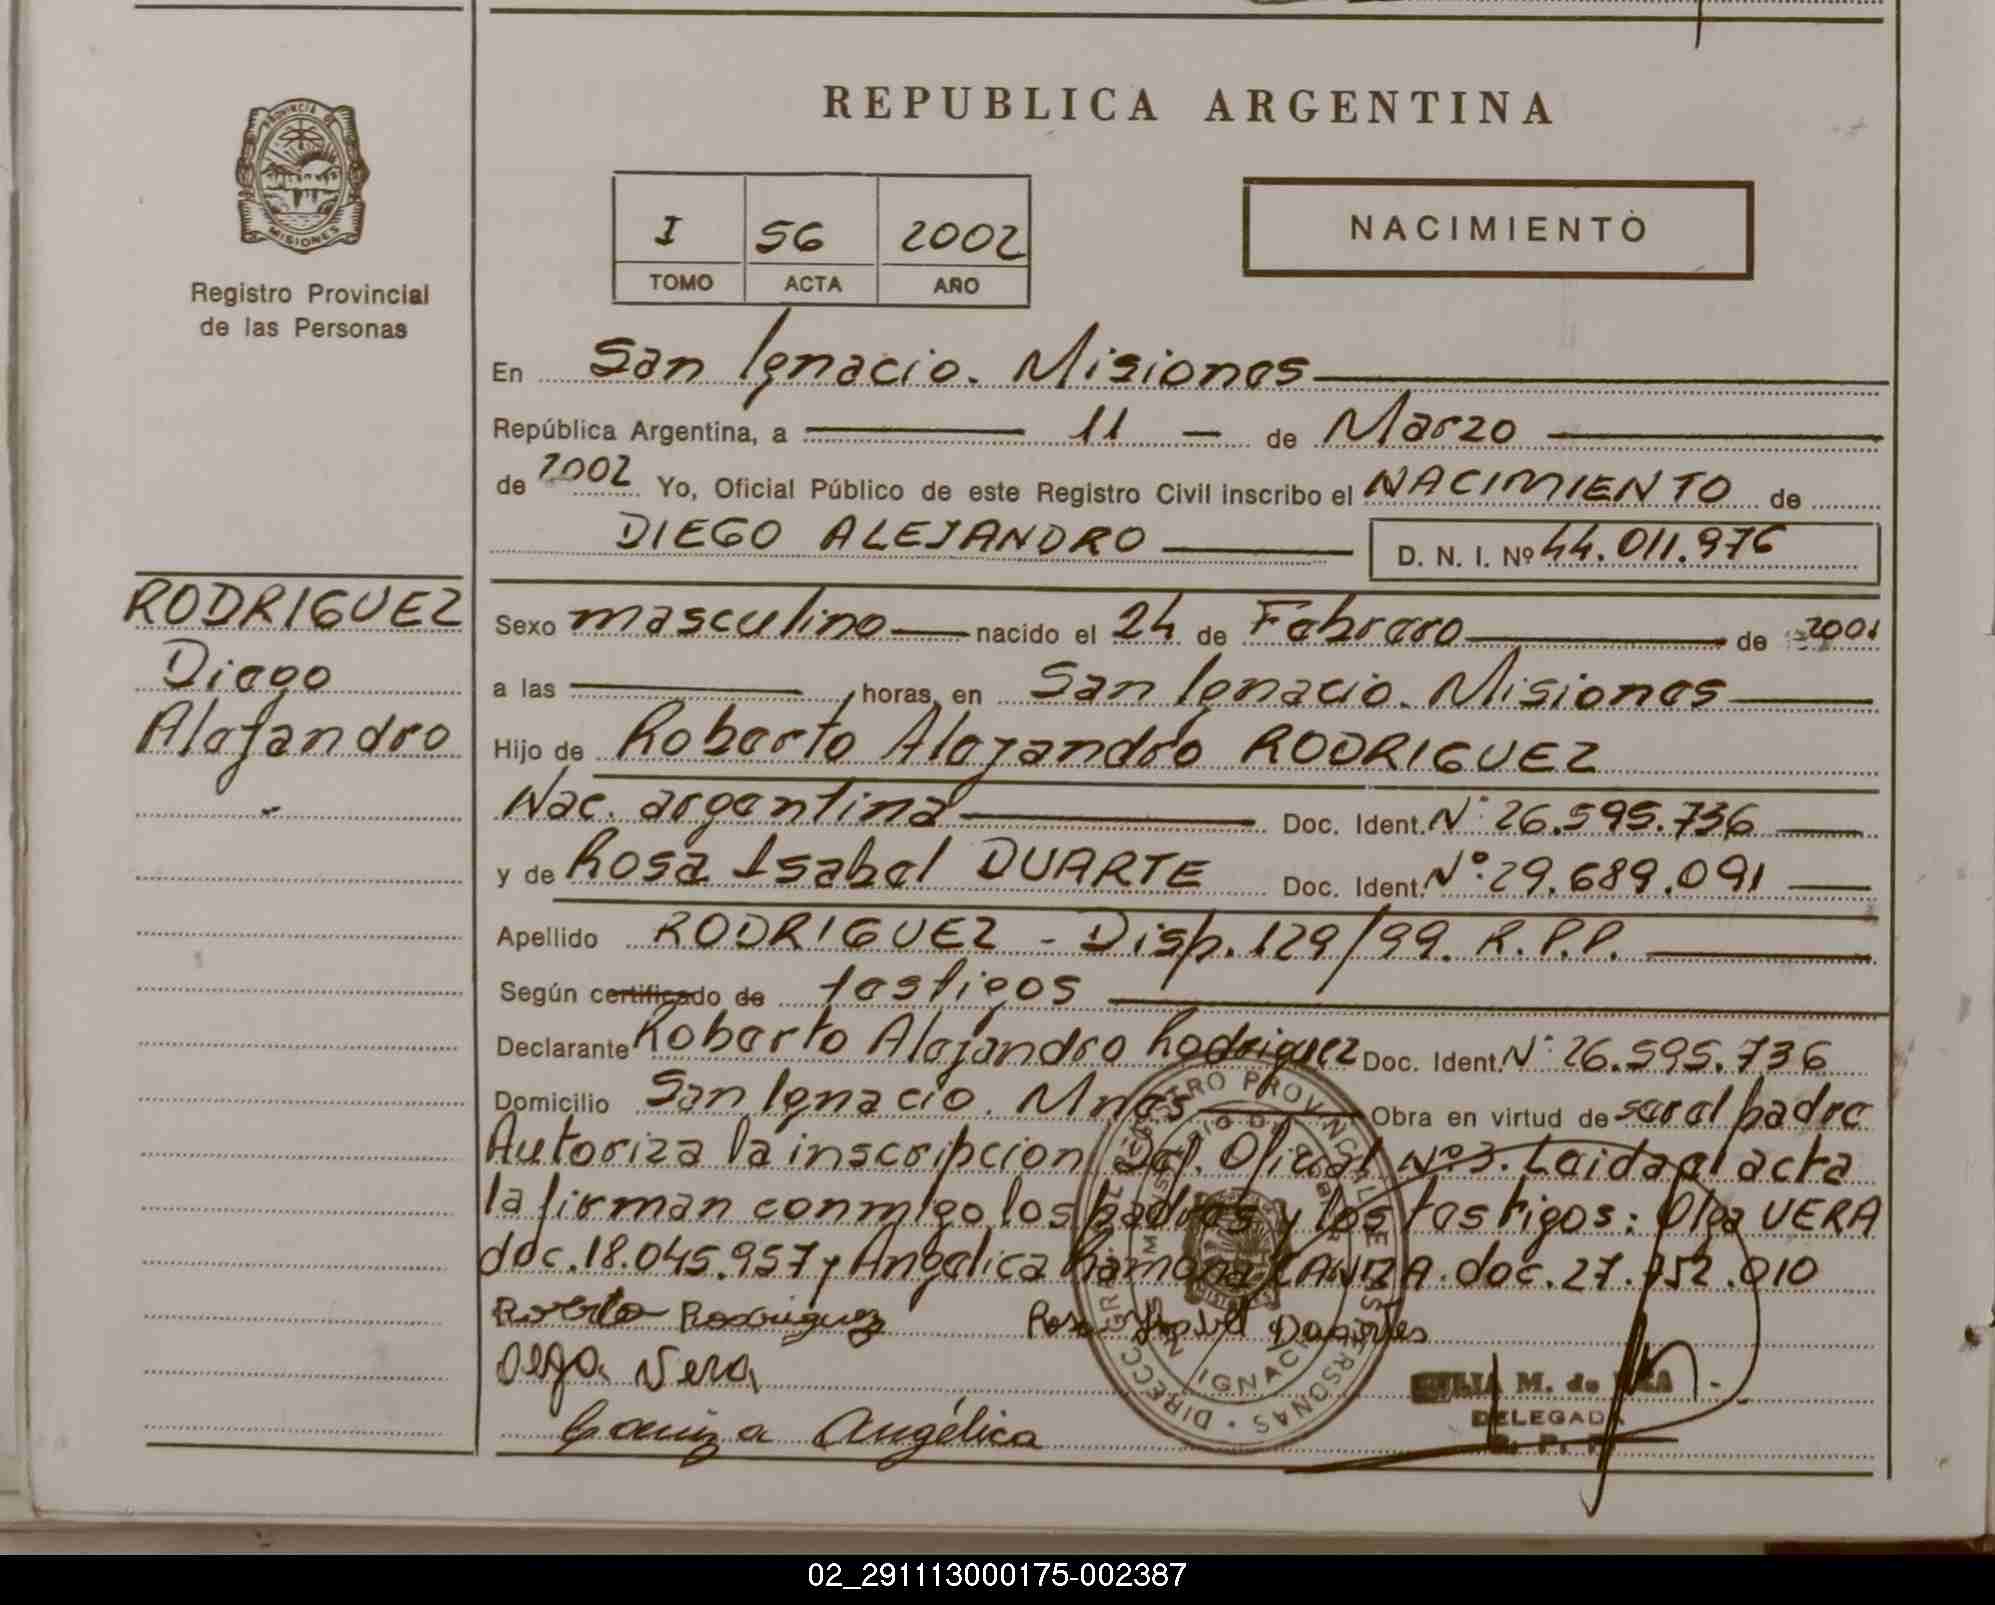 REPUBLICA ARGENTINA
PROVINCIA DE
MISIONES
Registro Provincial
de las Personas
I 56 2002
TOMO ACTA AÑO
NACIMIENTO
En San Ignacio. Misiones
República Argentina, a 11 de Marzo
de 2002 Yo, Oficial Público de este Registro Civil inscribo el NACIMIENTO de
DIEGO ALEJANDRO D. N. I. Nº 44.011.976
RODRIGUEZ
Diego
Alejandro
Sexo masculino nacido el 24 de Febrero de 2001
a las horas, en San Ignacio. Misiones
Hijo de Roberto Alejandro RODRIGUEZ
Nac. argentina Doc. Ident. Nº 26.595.736
y de Rosa Isabel DUARTE Doc. Ident. Nº: 29.689.091
Apellido RODRIGUEZ - Disp. 129/99. R.P.P.
Según certificado de testigos
Declarante Roberto Alejandro Rodriguez Doc. Ident. Nº 26.595.736
Domicilio San Ignacio. Mnes Obra en virtud de ser el padre
Autoriza la inscripcion Del. Oficial Nº3. Leida el acta
la firman conmigo los padres y los testigos: Olga VERA
doc. 18.045.957 y Angelica Ramona doc. 27. .010
Roberto Rodriguez Rosa
Olga Vera
Angélica
M. de
DELEGADA
R. P. P.
02_291113000175-002387